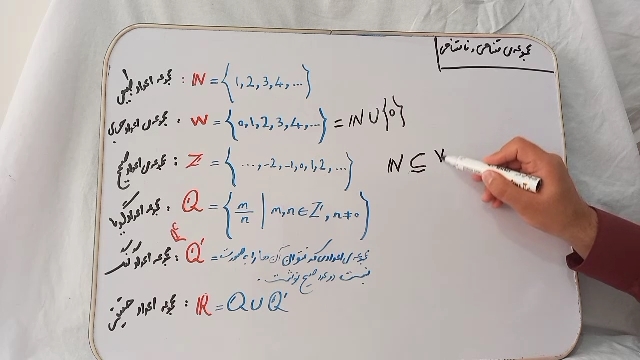 مجموعه‌ی متناهی و نامتناهی
مجموعه اعداد طبیعی : ℕ = {1, 2, 3, 4, ...}
مجموعه‌ی اعداد حسابی : W = {0, 1, 2, 3, 4, ...} = ℕ ∪ {0}
مجموعه‌ی اعداد صحیح : ℤ = {..., -2, -1, 0, 1, 2, ...}
ℕ ⊆
مجموعه اعداد گویا : Q = {m/n | m, n ∈ ℤ, n ≠ 0}
مجموعه اعداد گنگ : Q' = مجموعه‌ی اعدادی که نتوان آن‌ها را به صورت
نسبت دو عدد صحیح نوشت.
مجموعه اعداد حقیقی : ℝ = Q ∪ Q'